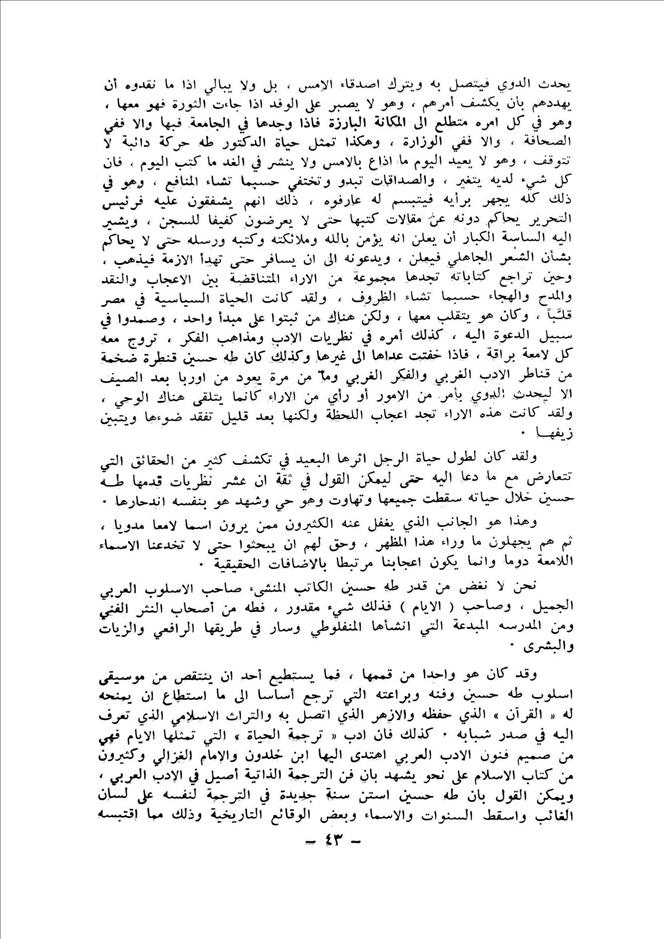 يحدث الدوي فيتصل به ويترك اصدقاء الامس ، بل ولا يبالي اذا ما نقدوه أن
يهددهم بان يكشف أمرهم ، وهو لا يصبر على الوفد اذا جاءت الثورة فهو معها ،
وهو في كل امره متطلع الى المكانة البارزة فاذا وجدها في الجامعة فبها والا ففي
الصحافة ، والا ففي الوزارة ، وهكذا تمثل حياة الدكتور طه حركة دائبة لا
تتوقف ، وهو لا يعيد اليوم ما اذاع بالامس ولا ينشر في الغد ما كتب اليوم ، فان
كل شيء لديه يتغير ، والصداقات تبدو وتختفي حسبما تشاء المنافع ، وهو في
ذلك كله يجهر برأيه فيتبسم له عارفوه ، ذلك انهم يشفقون عليه فرئيس
التحرير يحاكم دونه عن مقالات كتبها حتى لا يعرضون كفيفا للسجن ، ويشير
اليه الساسة الكبار أن يعلن انه يؤمن بالله وملائكته وكتبه ورسله حتى لا يحاكم
بشأن الشعر الجاهلي فيعلن ، ويدعونه الى ان يسافر حتى تهدأ الازمة فيذهب ،
وحين تراجع كتاباته تجدها مجموعة من الاراء المتناقضة بين الاعجاب والنقد
والمدح والهجاء حسبما تشاء الظروف ، ولقد كانت الحياة السياسية في مصر
قلّباً ، وكان هو يتقلب معها ، ولكن هناك من ثبتوا على مبدأ واحد ، وصمدوا في
سبيل الدعوة اليه ، كذلك أمره في نظريات الادب ومذاهب الفكر ، تروج معه
كل لامعة براقة ، فاذا خفتت عداها الى غيرها وكذلك كان طه حسين قنطرة ضخمة
من قناطر الادب الغربي والفكر الغربي وما من مرة يعود من اوربا بعد الصيف
الا ليحدث الدوي بأمر من الامور أو رأي من الاراء كانما يتلقى هناك الوحي ،
ولقد كانت هذه الاراء تجد اعجاب اللحظة ولكنها بعد قليل تفقد ضوءها ويتبين
زيفها ٠
ولقد كان لطول حياة الرجل اثرها البعيد في تكشف كثير من الحقائق التي
تتعارض مع ما دعا اليه حتى ليمكن القول في ثقة ان عشر نظريات قدمها طه
حسين خلال حياته سقطت جميعها وتهاوت وهو حي وشهد هو بنفسه اندحارها ٠
وهذا هو الجانب الذي يغفل عنه الكثيرون ممن يرون اسما لامعا مدويا ،
ثم هم يجهلون ما وراء هذا المظهر ، وحق لهم ان يبحثوا حتى لا تخدعنا الاسماء
اللامعة دوما وانما يكون اعجابنا مرتبطا بالاضافات الحقيقية ٠
نحن لا نغض من قدر طه حسين الكاتب المنشىء صاحب الاسلوب العربي
الجميل ، وصاحب ( الايام ) فذلك شيء مقدور ، فطه من أصحاب النثر الفني
ومن المدرسه المبدعة التي انشأها المنفلوطي وسار في طريقها الرافعي والزيات
والبشرى ٠
وقد كان هو واحدا من قممها ، فما يستطيع أحد ان ينتقص من موسيقى
اسلوب طه حسين وفنه وبراعته التي ترجع أساسا الى ما استطاع ان يمنحه
له « القرآن » الذي حفظه والازهر الذي اتصل به والتراث الاسلامي الذي تعرف
اليه في صدر شبابه ٠ كذلك فان ادب « ترجمة الحياة » التي تمثلها الايام فهي
من صميم فنون الادب العربي اهتدى اليها ابن خلدون والامام الغزالي وكثيرون
من كتاب الاسلام على نحو يشهد بان فن الترجمة الذاتية أصيل في الادب العربي ،
ويمكن القول بان طه حسين استن سنة جديدة في الترجمة لنفسه على لسان
الغائب واسقط السنوات والاسماء وبعض الوقائع التاريخية وذلك مما اقتبسه
– ٤٣ –